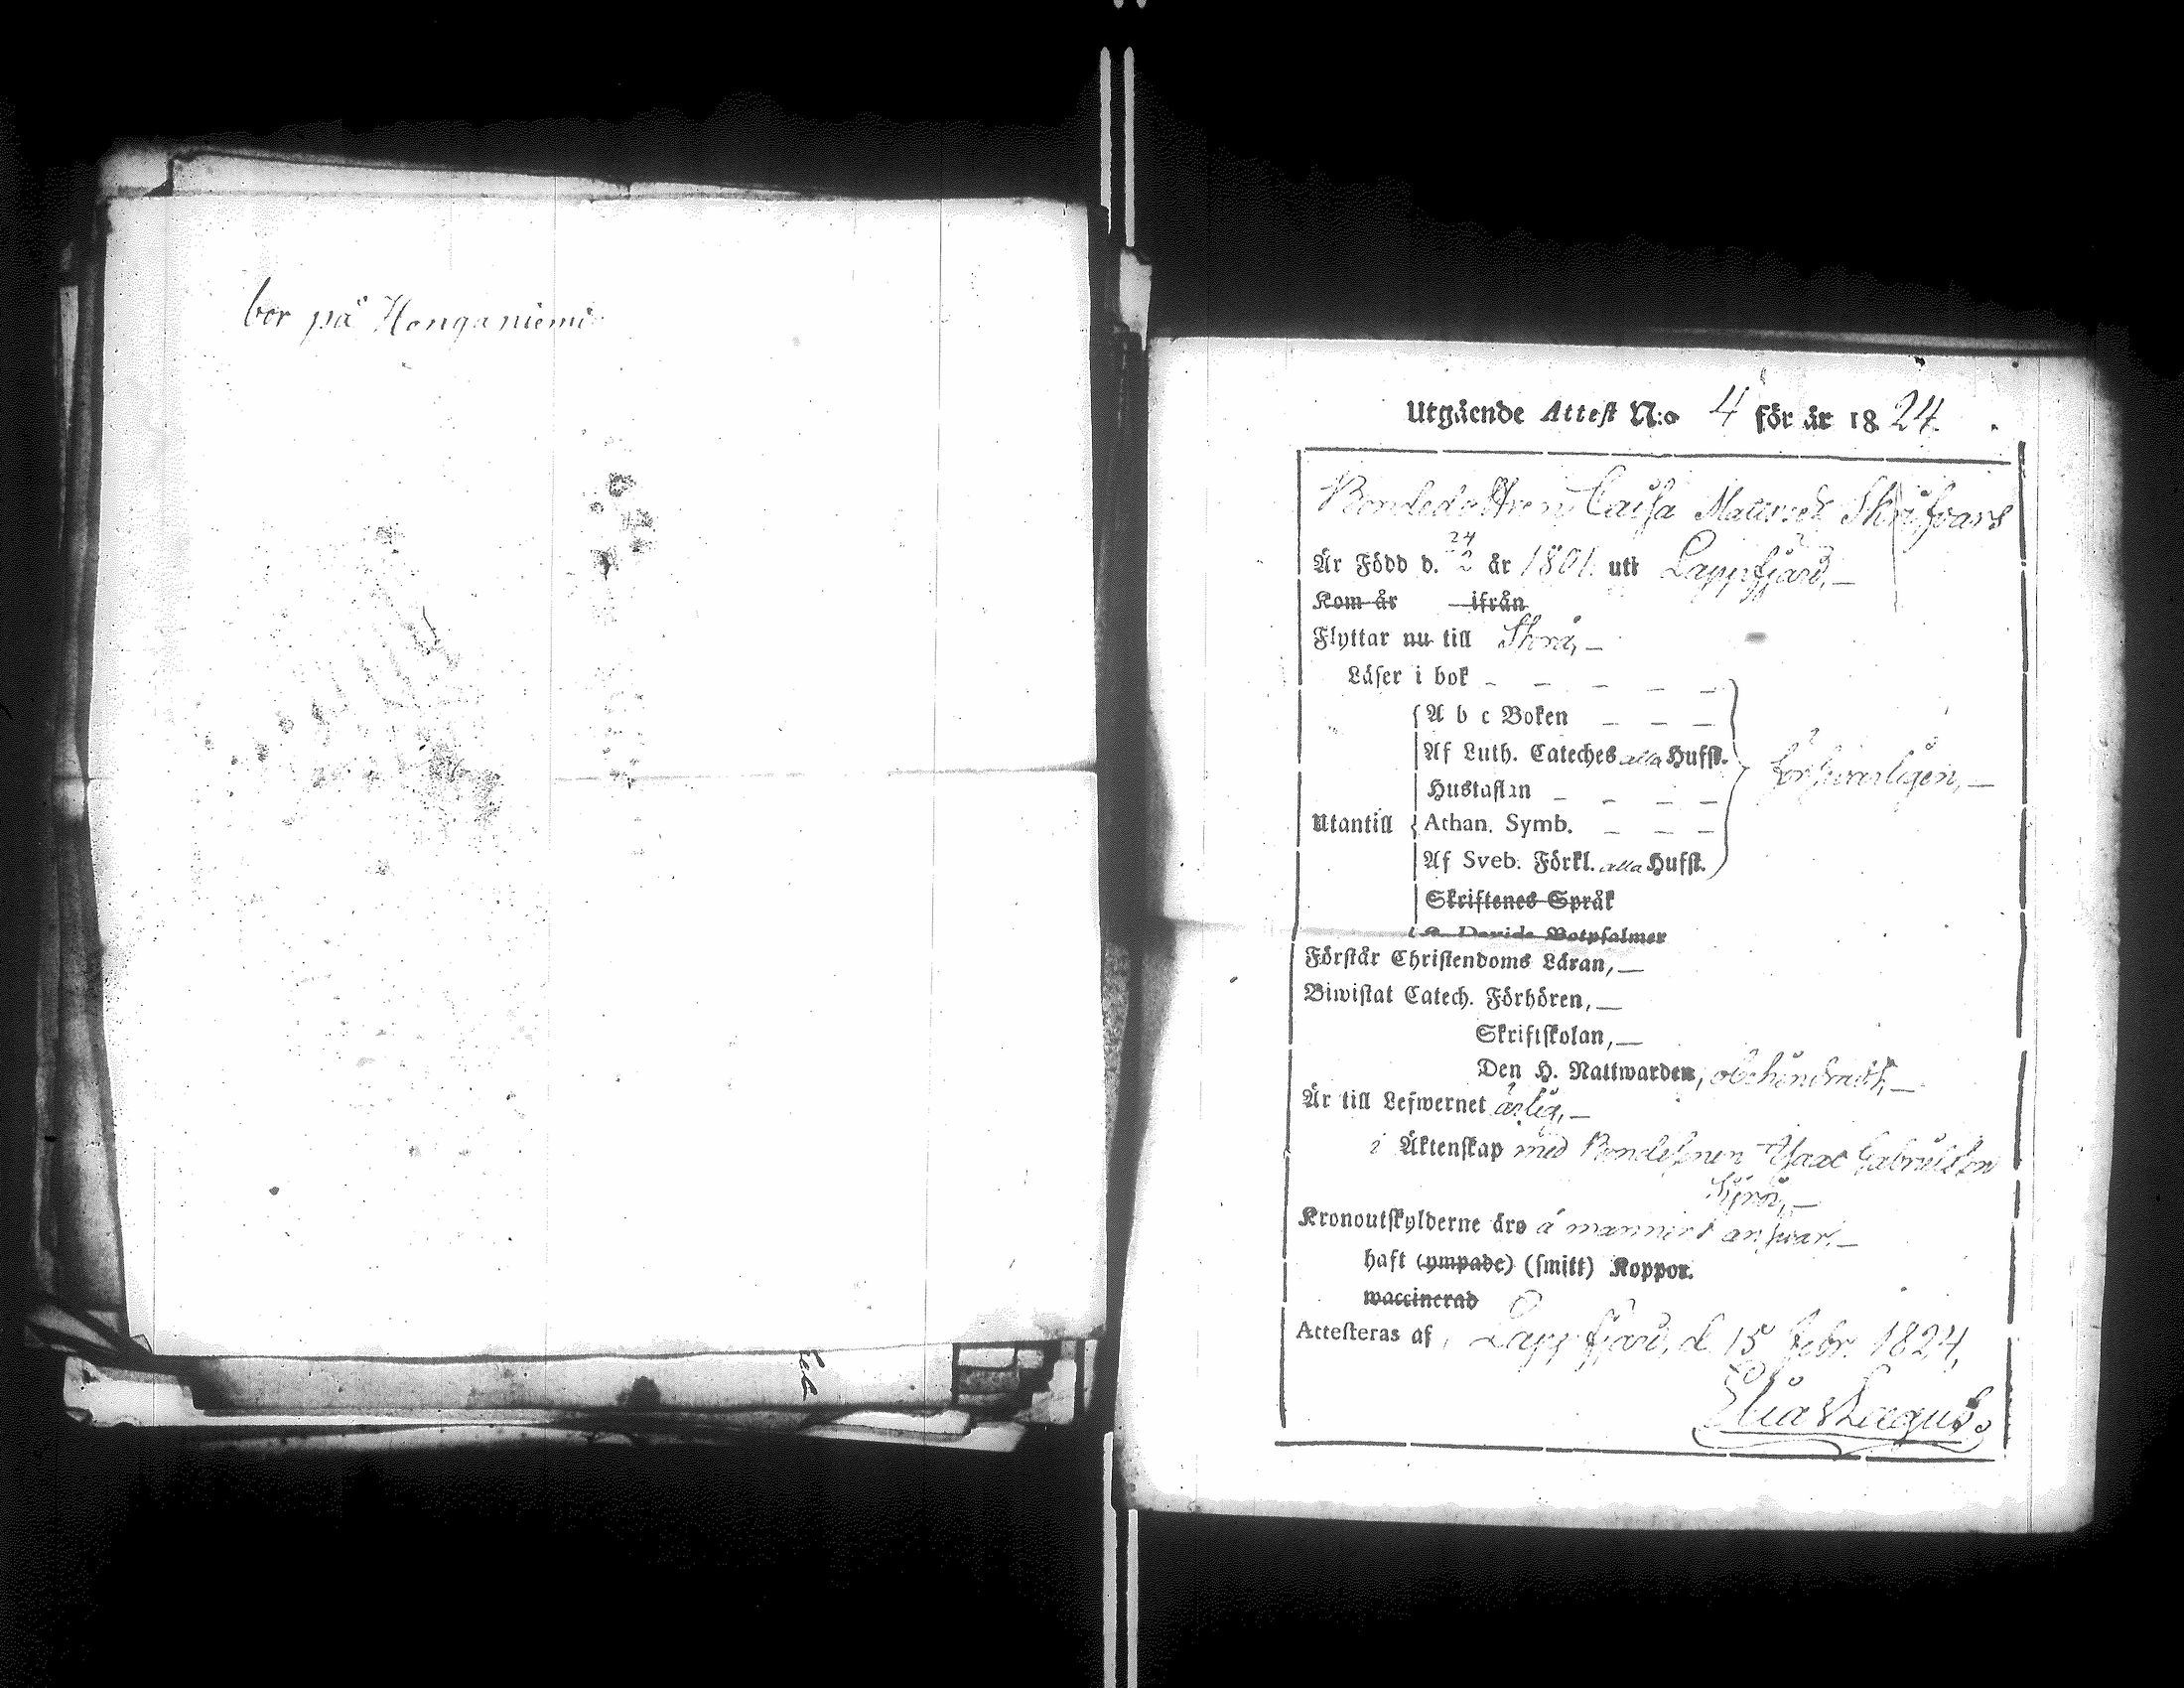 bor på Honganiemi
Utgående Attest N:o 4 för år 1824.
Bondedottren Caisa Skrifvars
Är Född d. 24/2 år 1801. uti Lappfjärd,—
Kom år — ifrån
Flyttar nu till
Läser i bok - - - - -
A b c Boken - - -
Af Luth. Cateches alla Hufst.
Hustaflan - - - -
försvarligen,—
Utantill Athan. Symb. - - -
Af Sveb. Förkl. alla Hufst.
Skriftenes Språk
K. Davids Botpsalmer
Förstår Christendoms Läran,—
Biwistat Catech. Förhören,—
Skriftskolan,—
Den H. Nattwarden, obehindradt,—
Är till Lefwernet ärlig,—
i Äktenskap med Bondesonen Isac Gabrielson
Kronoutskylderne äro å mannens answar.—
haft (ympade) (smitt) Koppor.
waccinerad
Attesteras af, Lappfjärd, d. 15 Febr. 1824,
Elia